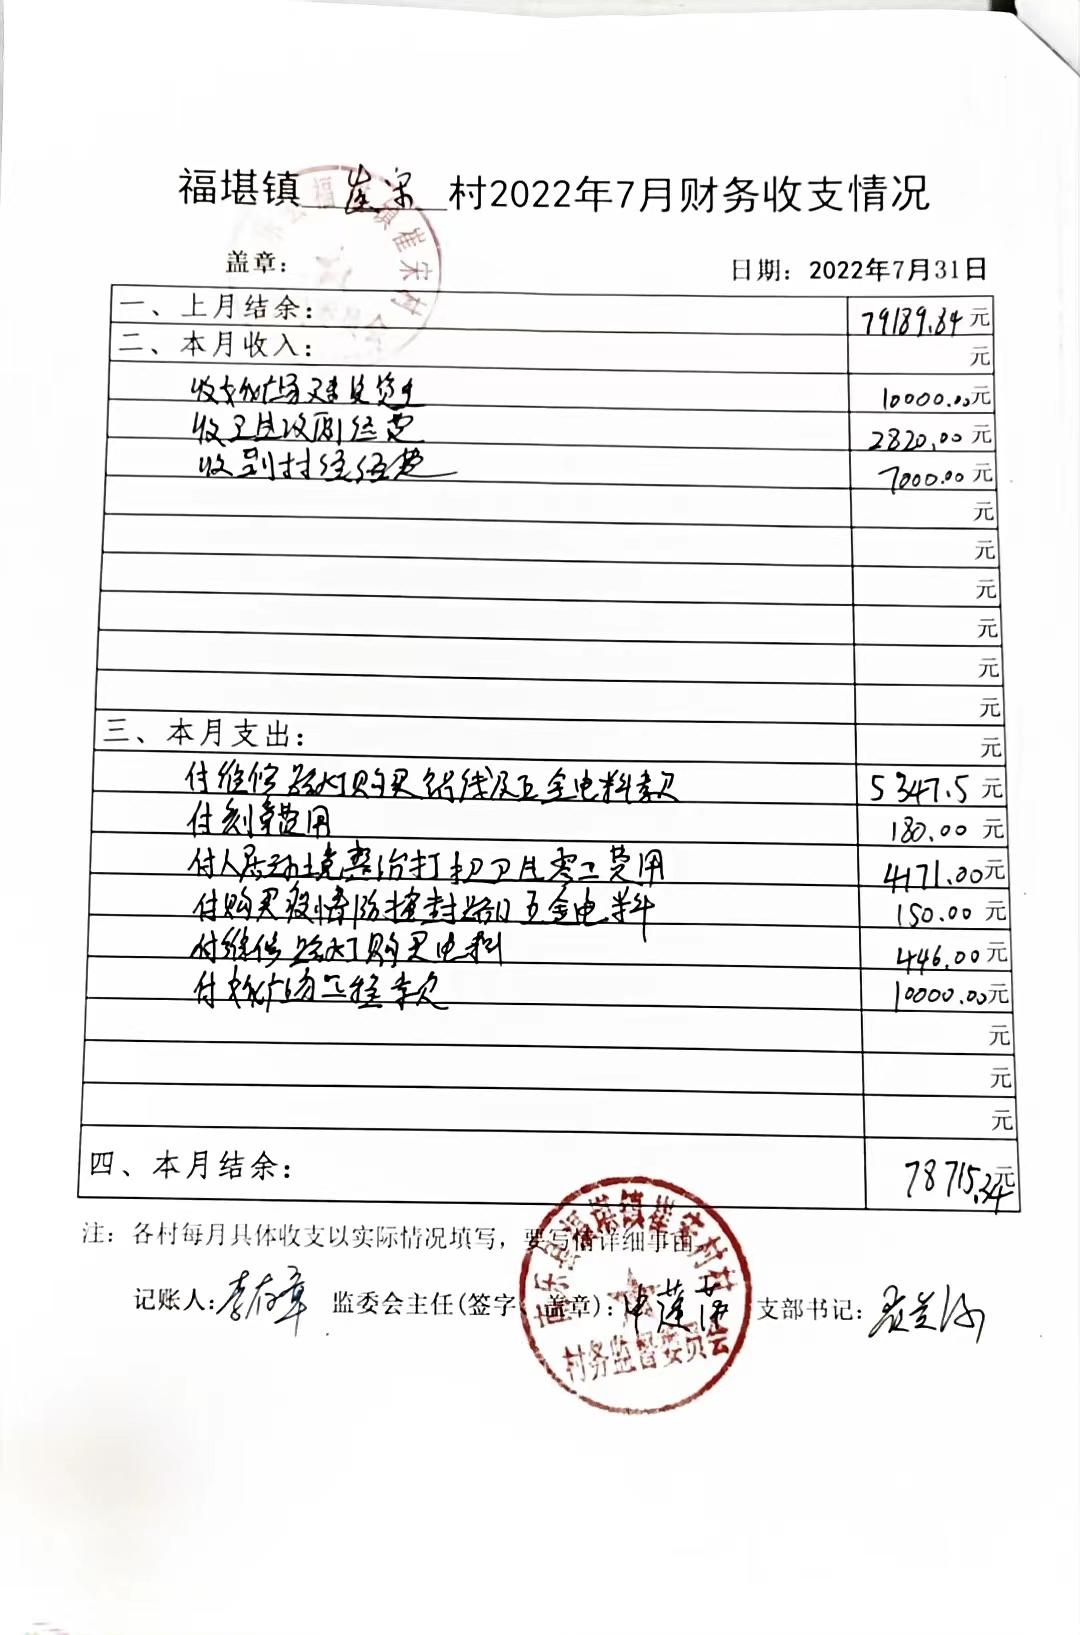 福堪镇 崔宋 村2022年7月财务收支情况
盖章： 日期：2022年7月31日
一、上月结余： 79189.84元
二、本月收入： 元
收文化广场建设资金 10000.00元
收卫生改厕经费 2820.00元
收到村经费 7000.00元
元
元
元
元
元
元
三、本月支出： 元
付维修路灯购买铝线及五金电料款 5347.5元
付刻章费用 180.00元
付人居环境整治打扫卫生零工费用 4171.00元
付购买疫情防控封路口五金电料 150.00元
付维修路灯购买电料 446.00元
付文化广场工程款 10000.00元
元
元
元
四、本月结余： 78715.34元
注：各村每月具体收支以实际情况填写，要写清详细事由
记账人：李存章 监委会主任(签字、盖章)：申莲萍 支部书记：
南乐县福堪镇崔宋村村务监督委员会